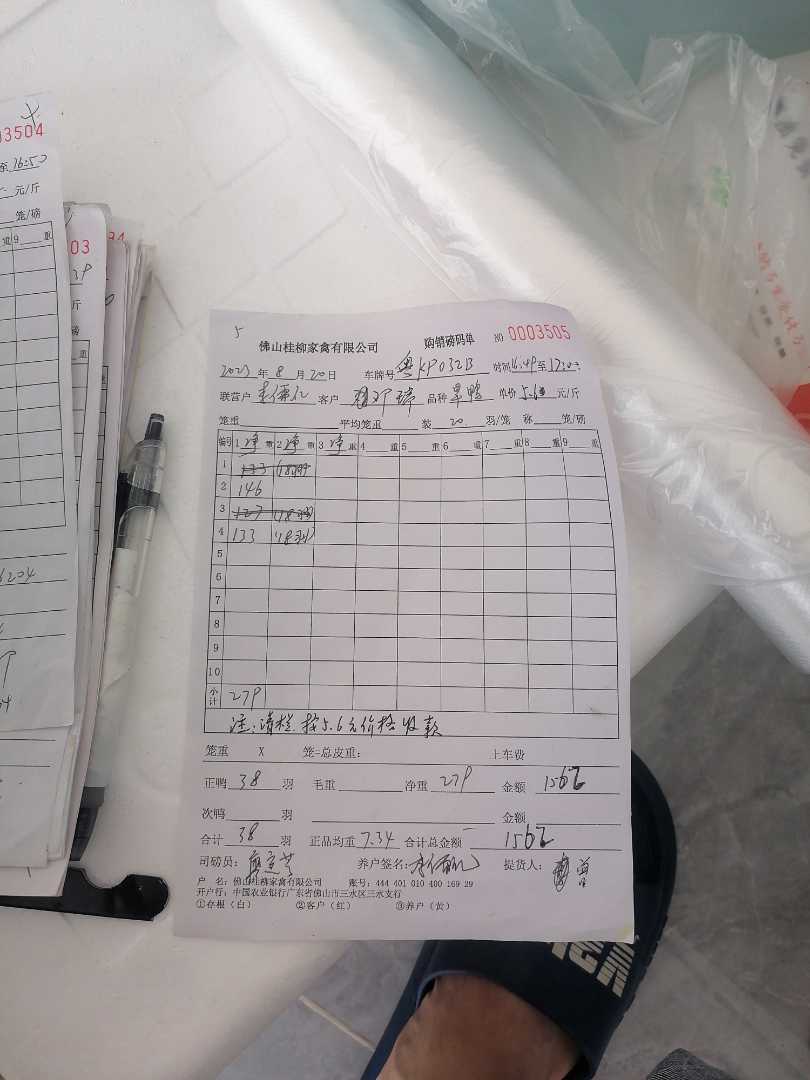 03504
至 16:50
元/斤
笼/磅
重 9 重
03
斤
磅
重
5
佛山桂柳家禽有限公司 购销磅码单 NO 0003505
2023年 8 月 20日 车牌号 粤KP032B 时间16:49至17:30
联营户 客户 品种 旱鸭 单价 5.60 元/斤
笼重 平均笼重 装 20 羽/笼 称 笼/磅
编号 1 净 重 2 净 重 3 净 重 4 重 5 重 6 重 7 重 8 重 9 重
1 123
2 146
3 127
4 133
5
6
7
8
9
10
小计 279
注:清栏 按5.6元价格收款
笼重 X 笼=总皮重: 上车费
正鸭 38 羽 毛重 净重 279 金额 1562
次鸭 羽 金额
合计 38 羽 正品均重 7.34 合计总金额 1562
司磅员: 养户签名: 提货人:
户 名:佛山桂柳家禽有限公司 账号:444 401 010 400 169 29
开户行:中国农业银行广东省佛山市三水区三水支行
①存根(白) ②客户(红) ③养户(黄)